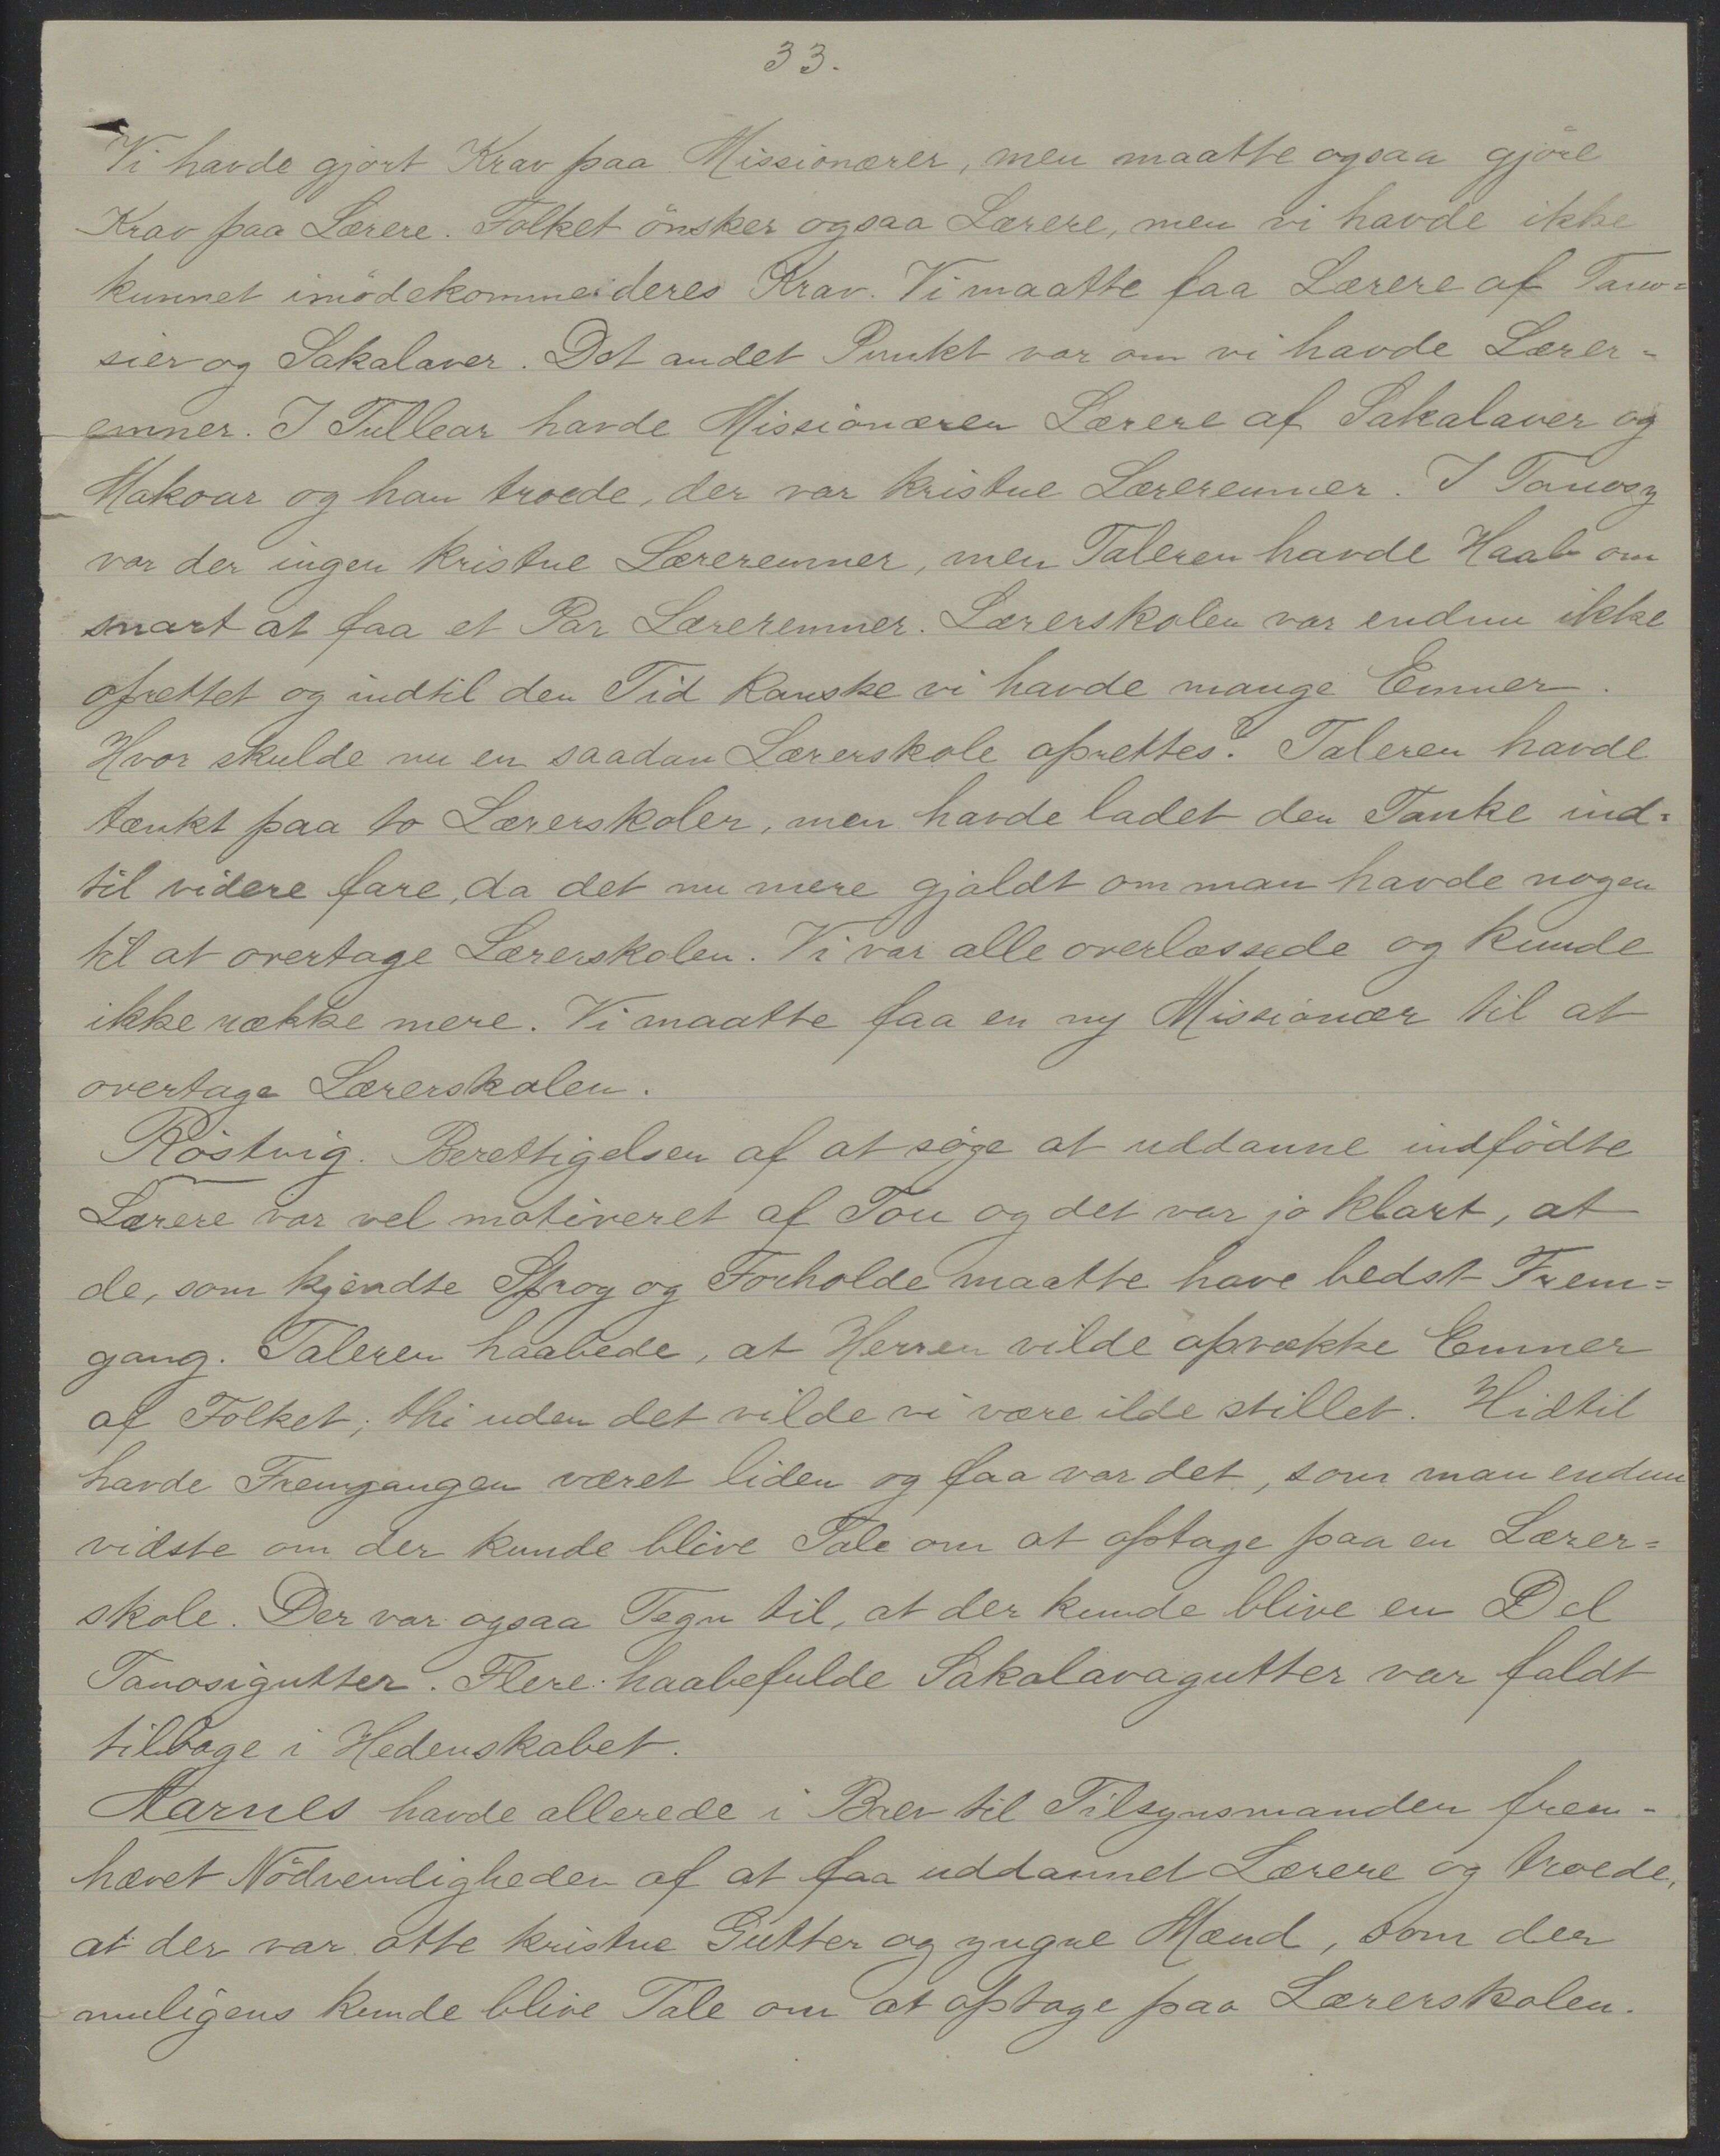 33.
Vi havde gjort Krav paa Missionærer, men maatte ogsaa gjöre
Krav paa Lærere. Folket önsker ogsaa Lærere, men vi havde ikke
kunnet imödekomme deres Krav. Vi maatte faa Lærere af Tano=
sier og Sakalaver. Det andet Punkt var om vi havde Lærer=
emner. I Tullear havde Missionæren Lærere af Sakalaver og
Makoar og han troede, der var kristne Læreremner. I Tanosy
var der ingen kristne Læreremner, men Taleren havde Haab om
snart at faa et Par Læreremner. Lærerskolen var endnu ikke
oprettet og indtil den Tid kanske vi havde mange Emner.
Hvor skulde nu en saadan Lærerskole oprettes? Taleren havde
tænkt paa to Lærerskoler, men havde ladet den Tanke ind=
til videre fare, da det nu mere gjaldt om man havde nogen
til at overtage Lærerskolen. Vi var alle overlæssede og kunde
ikke række mere. Vi maatte faa en ny Missionær til at
overtage Lærerskolen.
Röstvig. Berettigelsen af at söge at uddanne indfödte
Lærere var vel motiveret af Tou og det var jo klart, at
de, som kjendte Sprog og Forholde maatte have bedst Frem=
gang. Taleren haabede, at Herren vilde opvække Emner
af Folket; thi uden det vilde vi være ilde stillet. Hidtil
havde Fremgangen været liden og faa var det, som man endnu
vidste om der kunde blive Tale om at optage paa en Lærer=
skole. Der var ogsaa Tegn til, at der kunde blive en Del
Tanosigutter. Flere haabefulde Sakalavagutter var faldt
tilbage i Hedenskabet.
Aarnes havde allerede i Brev til Tilsynsmanden frem-
hævet Nödvendigheden af at faa uddannet Lærere og troede,
at der var otte kristne Gutter og yngre Mænd, som der
muligens kunde blive Tale om at optage paa Lærerskolen.